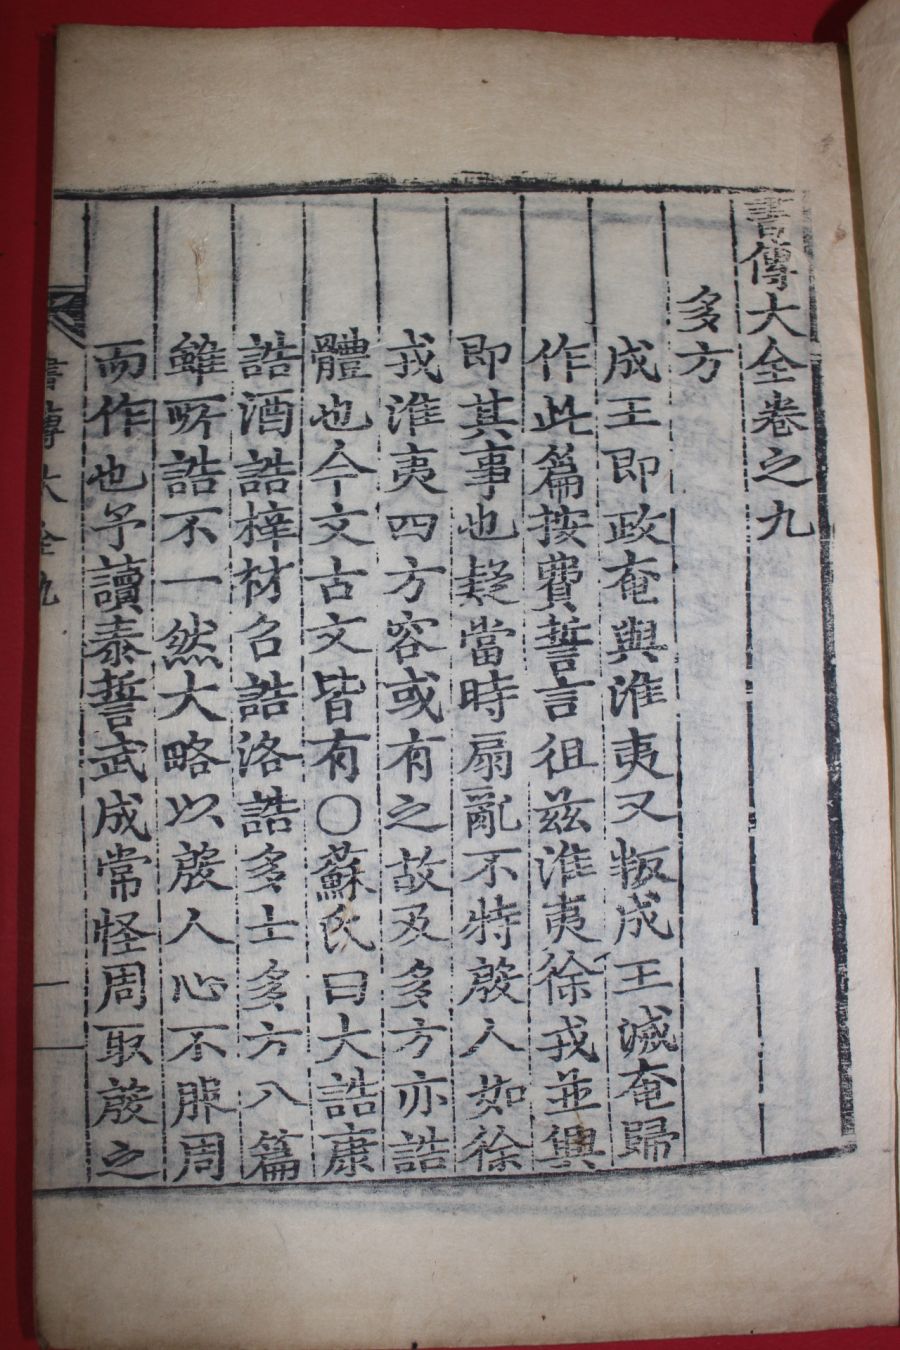 書傳大全卷之九
多方
成王即政奄與淮夷又叛成王滅奄歸
作此篇按費誓言徂茲淮夷徐戎並興
即其事也疑當時扇亂不特殷人如徐
戎淮夷四方容或有之故及多方亦誥
體也今文古文皆有○蘇氏曰大誥康
誥酒誥梓材召誥洛誥多士多方八篇
雖所誥不一然大略以殷人心不服周
而作也予讀泰誓武成常怪周取殷之
書傳大全九